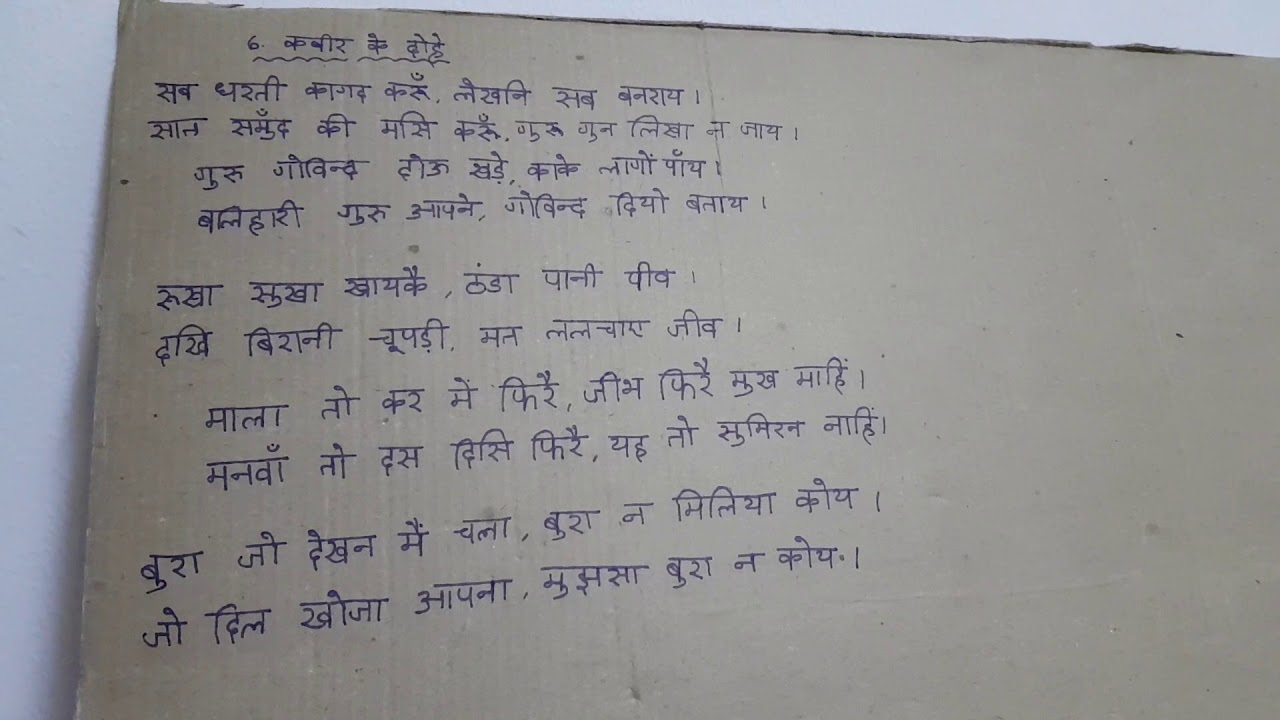 6. कबीर के दोहे
सब धरती कागद करूँ, लेखनि सब बनराय।
सात समुँद की मसि करूँ, गुरू गुन लिखा न जाय।
गुरु गोविन्द दोऊ खड़े, काके लागों पाँय।
बलिहारी गुरु आपने, गोविन्द दियो बताय।
रूखा सुखा खायकै, ठंडा पानी पीव।
दखि बिरानी चूपड़ी, मत ललचाए जीव।
माला तो कर में फिरै, जीभ फिरै मुख माहिं।
मनवाँ तो दस दिसि फिरै, यह तो सुमिरन नाहिं।
बुरा जो देखन मैं चला, बुरा न मिलिया कोय।
जो दिल खोजा आपना, मुझसा बुरा न कोय।